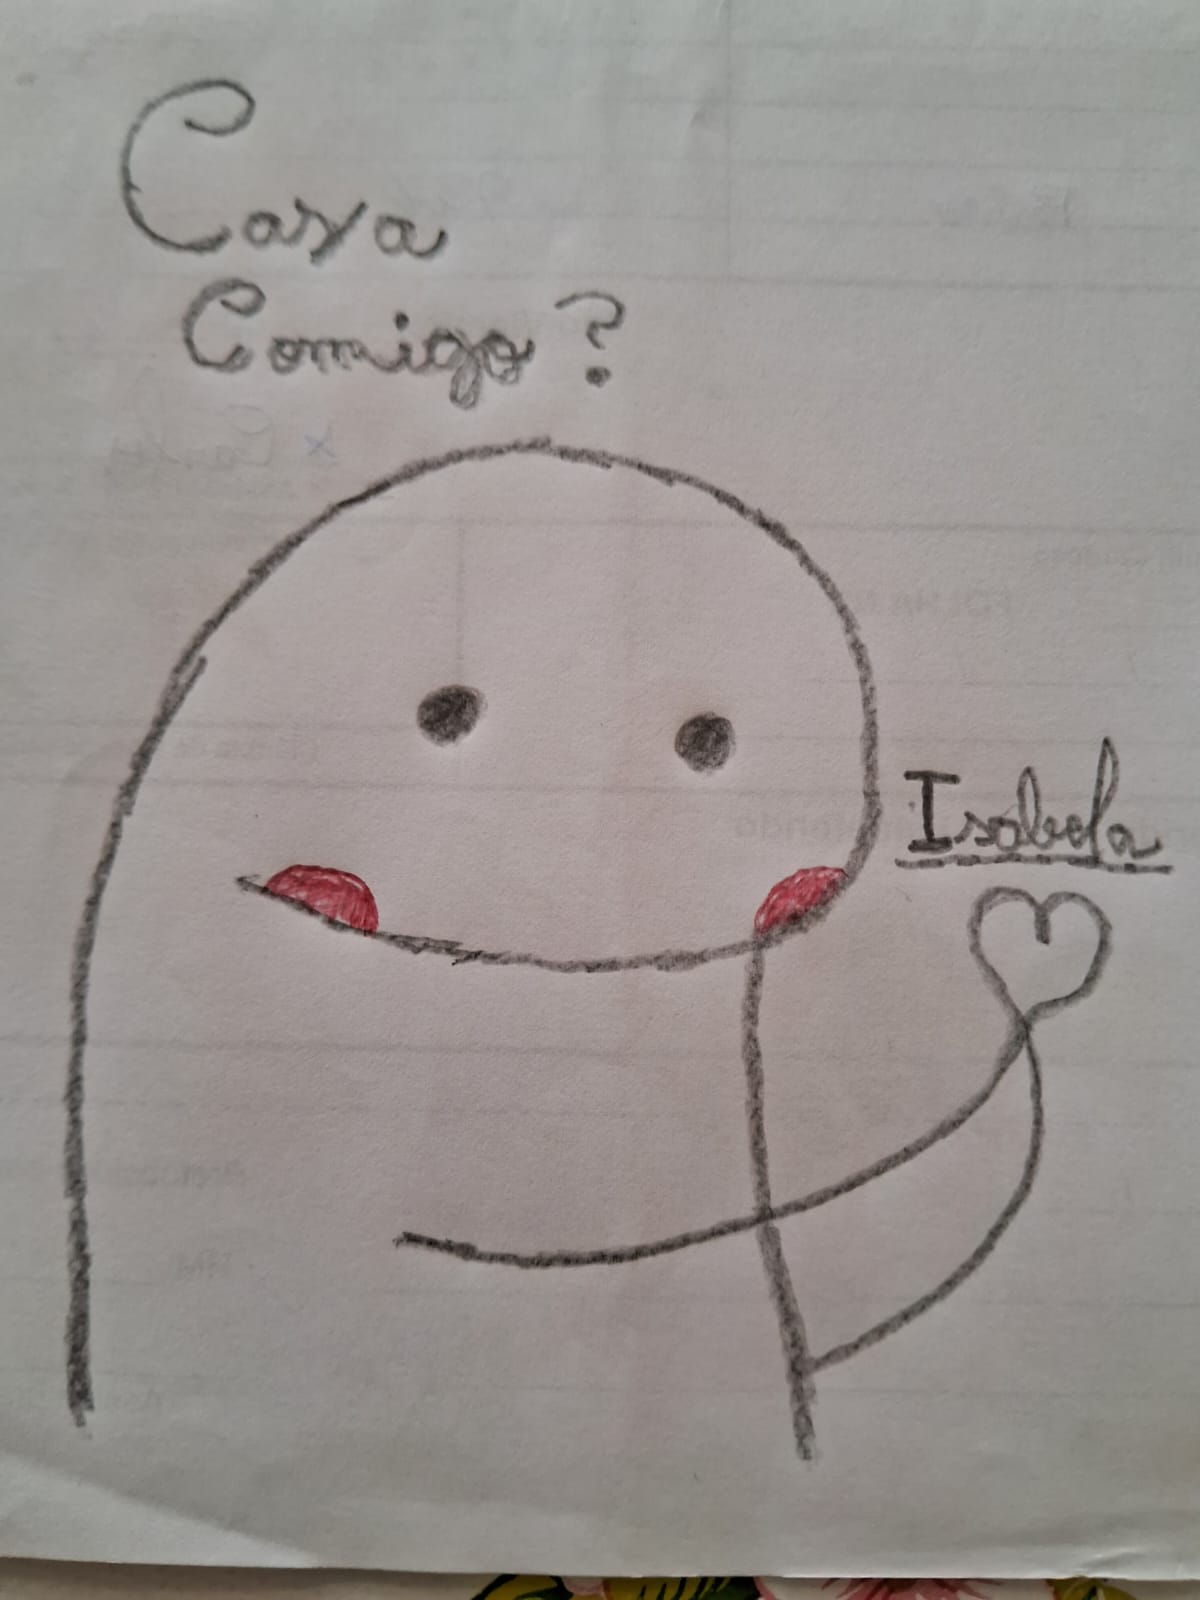 Casa
Comigo?
Isabela